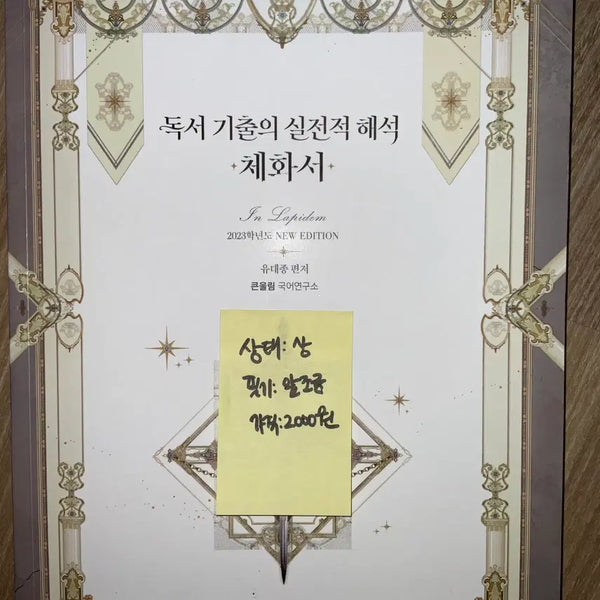 독서 기술의 실전적 해석
체화서
In Lapidem
2023학년도 NEW EDITION
유대종 편저
큰울림 국어연구소
상태: 상
필기: 앞조금
가격: 2000원